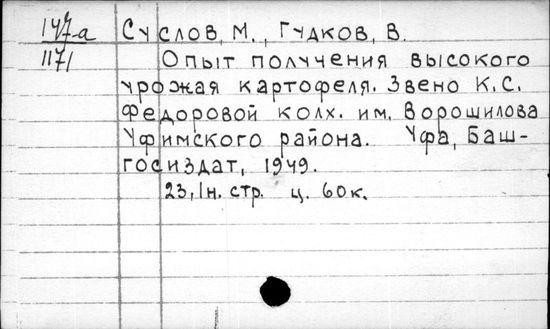 147-а Суслов, М., Гудков, В.
1171 Опыт получения высокого
урожая картофеля. Звено К.С.
Федоровой колх. им. Ворошилова
Уфимского района. Уфа, Баш-
госиздат, 1949.
23, 1н. стр. ц. 60к.